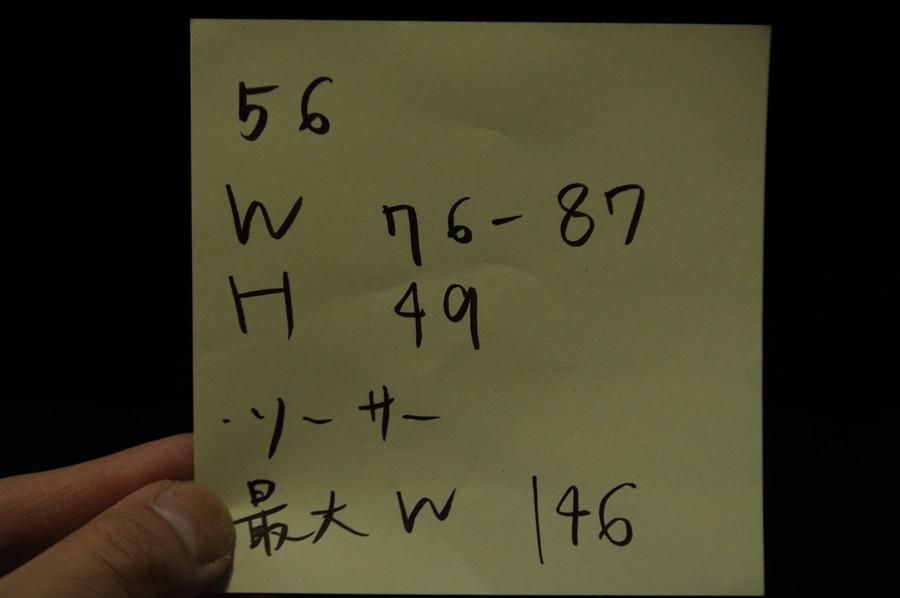 56
W 76-87
H 49
・ソーサー
最大 W 146